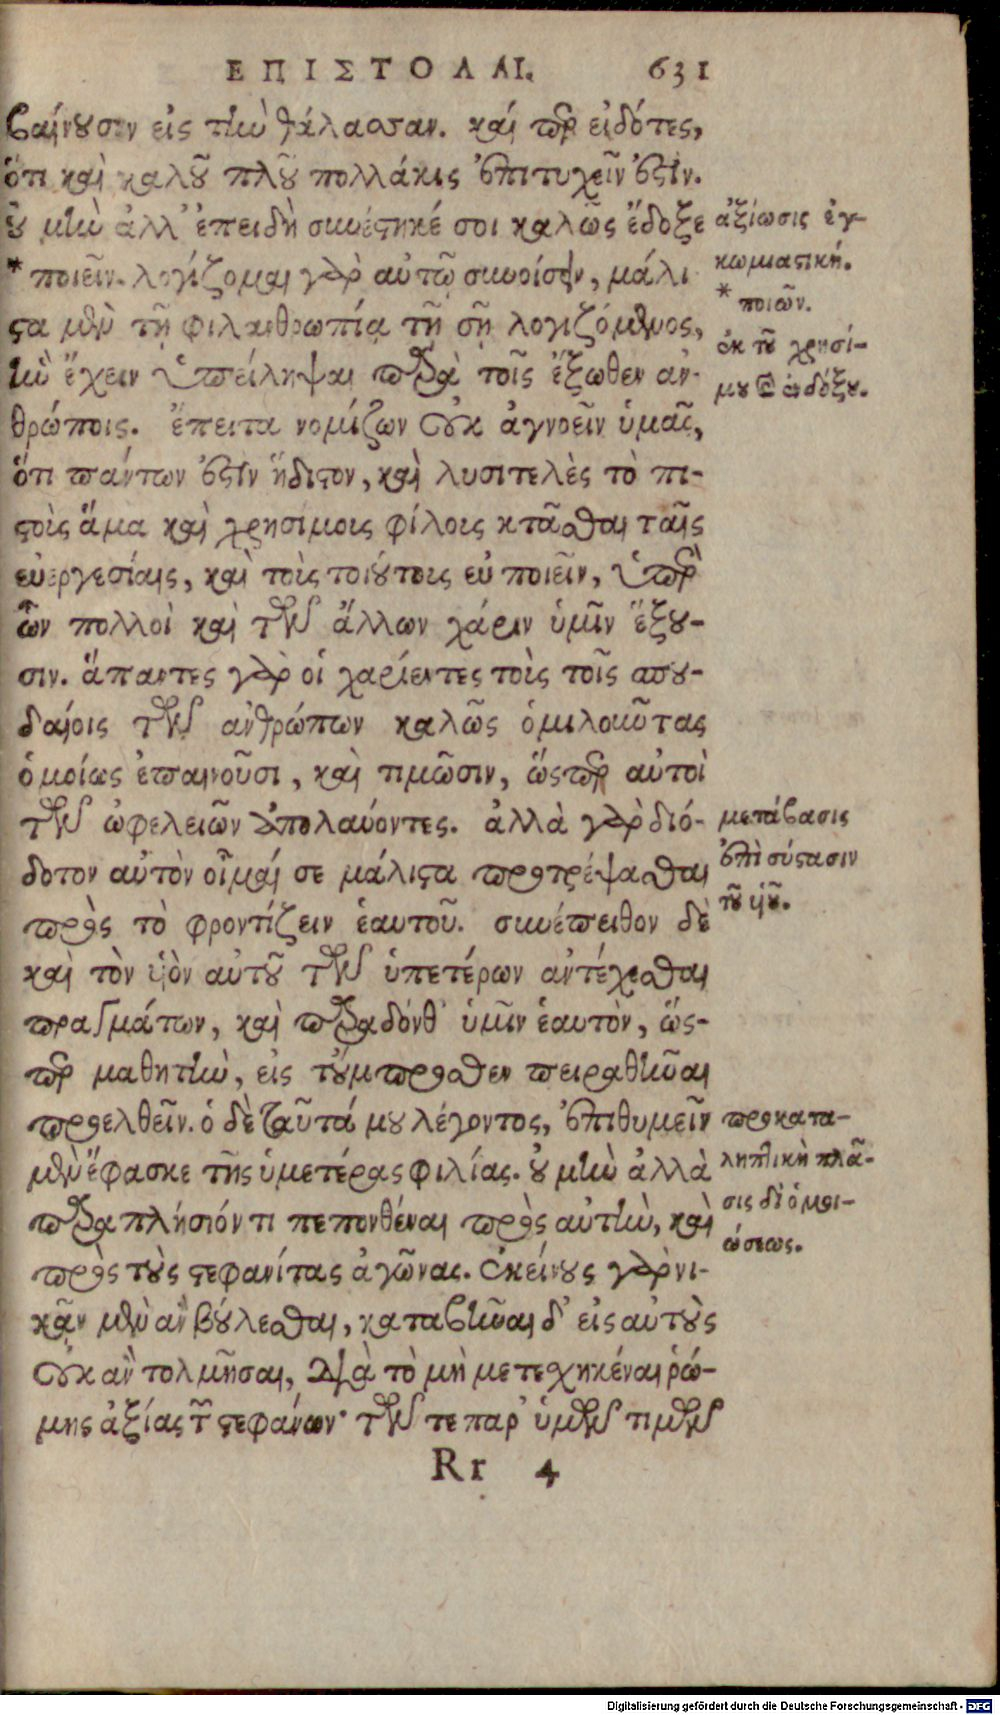 ΕΠΙΣΤΟΛΑΙ. 631
βαίνουσιν εἰς τὴν θάλασσαν. καίπερ εἰδότες,
ὅτι καὶ καλοῦ πλοῦ πολλάκις ἐπιτυχεῖν ἐστίν.
οὐ μὴν ἀλλ' ἐπειδὴ συνέστηκέ σοι καλῶς ἔδοξε
* ποιεῖν. λογίζομαι γὰρ αὐτῷ συνοίσειν, μάλι
στα μὲν τῇ φιλανθρωπίᾳ τῇ σῇ λογιζόμενος,
ἣν ἔχειν ὑπείληψαι παρὰ τοῖς ἔξωθεν ἀν-
θρώποις. ἔπειτα νομίζων οὐκ ἀγνοεῖν ὑμᾶς,
ὅτι πάντων ἐστὶν ἥδιστον, καὶ λυσιτελὲς τὸ πι-
στοὶς ἅμα καὶ χρησίμοις φίλοις κτᾶσθαι ταῖς
εὐεργεσίαις, καὶ τοὶς τοιούτοις εὐ ποιεῖν, ὑπὲρ
ὧν πολλοὶ καὶ τῶν ἄλλων χάριν ὑμῖν ἕξου-
σιν. ἅπαντες γὰρ οἱ χαρίεντες τοὶς τοῖς σπου-
δαίοις τῶν ἀνθρώπων καλῶς ὁμιλοῦντας
ὁμοίως ἐπαινοῦσι, καὶ τιμῶσιν, ὥσπερ αὐτοὶ
τῶν ὠφελειῶν ἀπολαύοντες. ἀλλὰ γὰρ διό-
δοτον αὐτὸν οἶμαί σε μάλιστα προτρέψασθαι
πρὸς τὸ φροντίζειν ἑαυτοῦ. συνέπειθον δὲ
καὶ τὸν υἱὸν αὐτοῦ τῶν ὑπετέρων ἀντέχεσθαι
πραγμάτων, καὶ παραδόνθ' ὑμῖν ἑαυτὸν, ὥς-
περ μαθητὴν, εἰς τοὔμπροσθεν πειραθῆναι
προελθεῖν. ὁ δὲ ταῦτά μου λέγοντος, ἐπιθυμεῖν
μὲν ἔφασκε τῆς ὑμετέρας φιλίας. οὐ μὴν ἀλλὰ
παραπλήσιόν τι πεπονθέναι πρὸς αὐτὴν, καὶ
πρὸς τοὺς στεφανίτας ἀγῶνας. ἐκείνους γὰρ νι-
κᾶν μὲν ἂν βούλεσθαι, καταβῆναι δ' εἰς αὐτοὺς
οὐκ ἂν τολμῆσαι, διὰ τὸ μὴ μετεσχηκέναι ῥώ-
μης ἀξίας τῶν στεφάνων· τῶν τε παρ' ὑμῶν τιμῶν
Rr 4
ἀξίωσις ἐγ-
κωμιαστική.
* ποιῶν.
ἐκ τοῦ χρησί-
μου καὶ ἐνδόξου.
μετάβασις
ἐπὶ σύστασιν
τοῦ υἱοῦ.
προκατα-
ληπτικὴ πλᾶ-
σις δι' ὁμοι-
ώσεως.
Digitalisierung gefördert durch die Deutsche Forschungsgemeinschaft - DFG